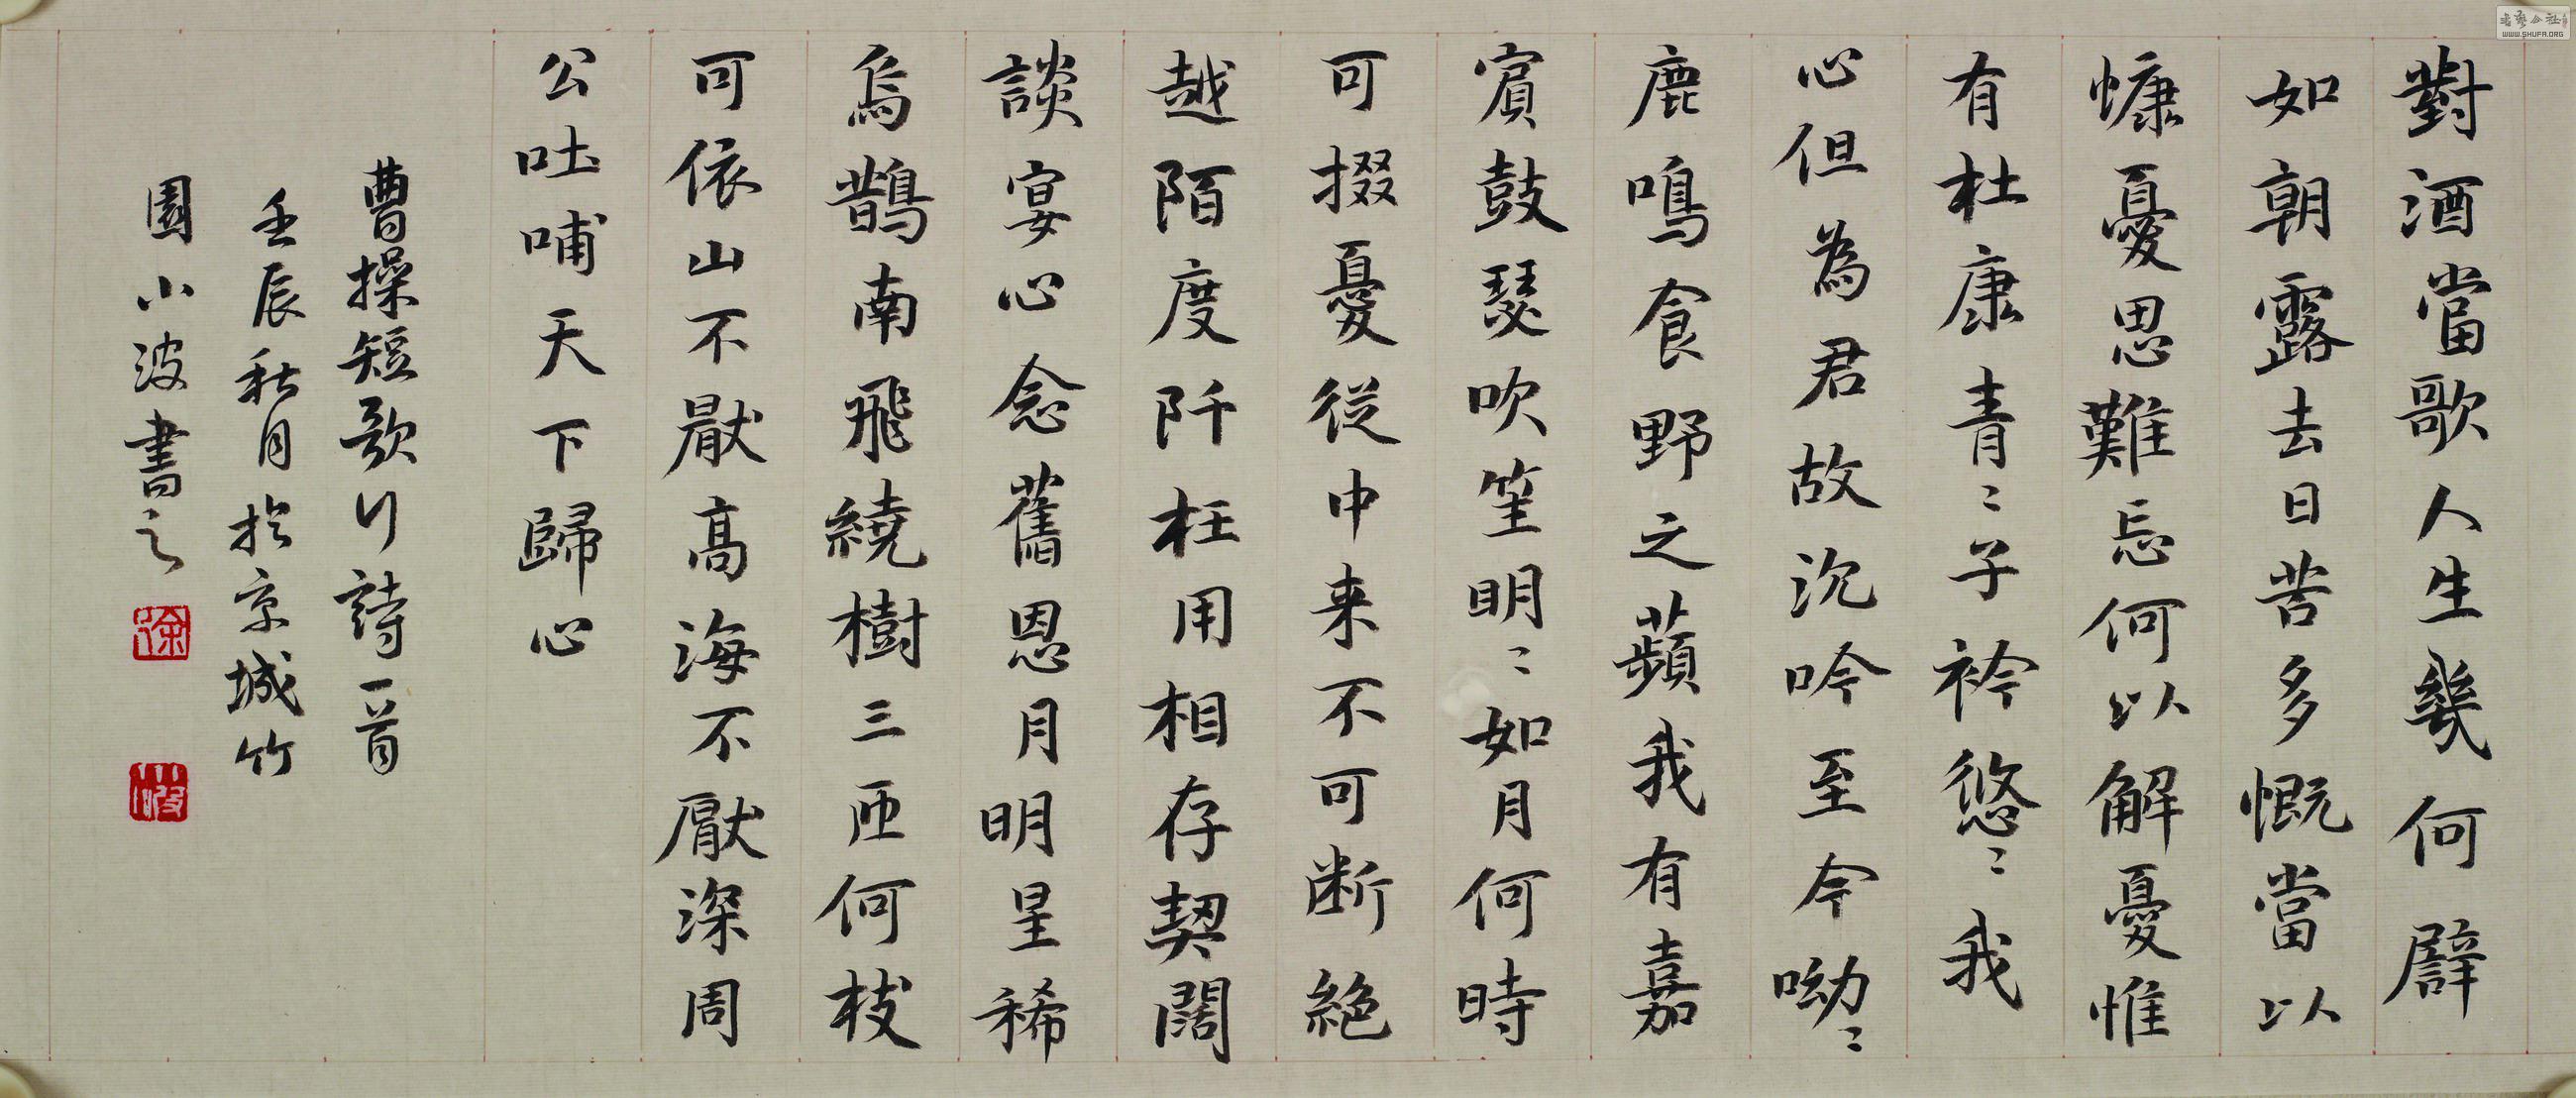 對酒當歌人生幾何譬
如朝露去日苦多慨當以
慷憂思難忘何以解憂惟
有杜康青〻子衿悠〻我
心但為君故沉吟至今呦〻
鹿鳴食野之蘋我有嘉
賓鼓瑟吹笙明〻如月何時
可掇憂從中来不可断絕
越陌度阡枉用相存契闊
談宴心念舊恩月明星稀
烏鵲南飛繞樹三匝何枝
可依山不厭高海不厭深周
公吐哺天下歸心
曹操短歌行詩一首
壬辰秋月於京城竹
園小波書之
徐
波
WWW.SHUFA.ORG